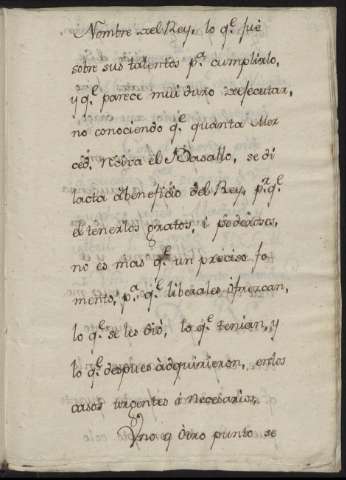 Nombre del Rey, lo q.e fuè
sobre sus talentos p.a cumplirlo,
y q.e parece mui duro executar,
no conociendo q.e quanta Mer
ced, el Basallo, se di
lacta à beneficio del Rey, p.r q.e
el tenerlos gratos, i poderosos,
no es mas q.e un preciso fo
mento, p.a q.e liberales ofrezcan,
lo q.e se les diò, lo q.e tenian, y
lo q.e despues àdquirieron, en los
casos urgentes ó necesarios,
Y no q otro punto se